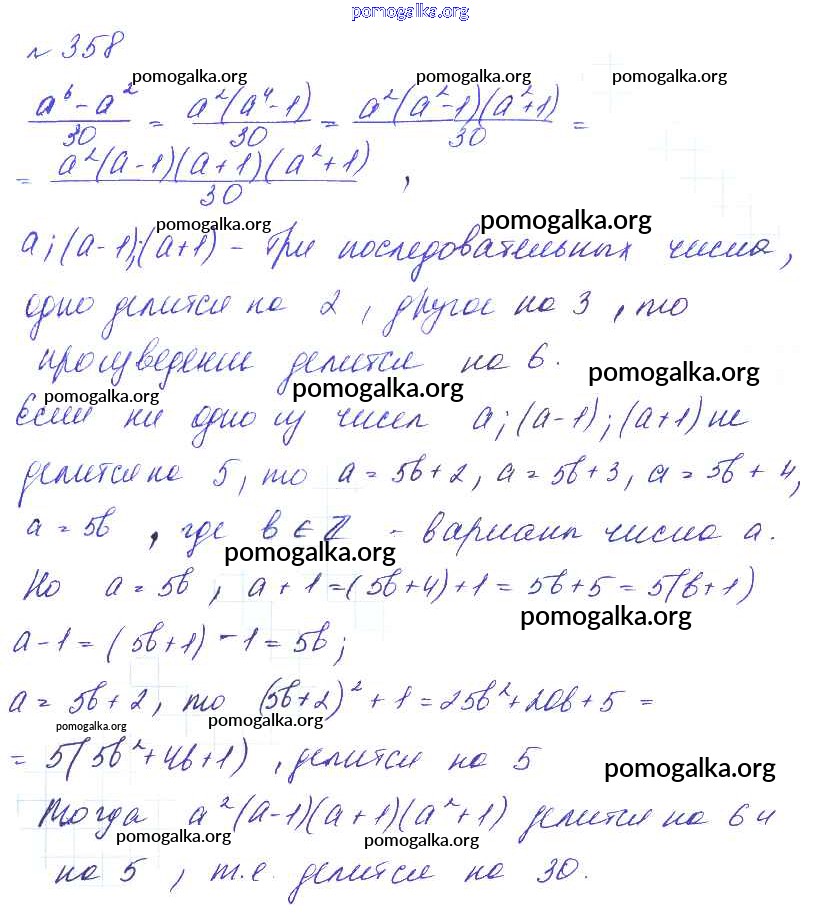 pomogalka.org
№ 358
pomogalka.org pomogalka.org pomogalka.org
(a⁶ - a²)/30 = a²(a⁴-1)/30 = a²(a²-1)(a²+1)/30 =
= a²(a-1)(a+1)(a²+1)/30 ,
pomogalka.org pomogalka.org
a; (a-1); (a+1) - три последовательных числа,
одно делится на 2, другое на 3, то
произведение делится на 6.
pomogalka.org pomogalka.org pomogalka.org
Если ни одно из чисел a; (a-1); (a+1) не
делится на 5, то a = 5b+2, a = 5b+3, a = 5b + 4,
a = 5b , где b ∈ Z - вариант числа a.
pomogalka.org
Но a = 5b, a + 1 = (5b+4)+1 = 5b+5 = 5(b+1)
pomogalka.org
a-1 = (5b+1) - 1 = 5b;
a = 5b+2, то (5b+2)² + 1 = 25b²+20b+5 =
pomogalka.org pomogalka.org
= 5(5b²+4b+1), делится на 5
pomogalka.org
Тогда a²(a-1)(a+1)(a²+1) делится на 6 и
pomogalka.org pomogalka.org
на 5, т.е. делится на 30.